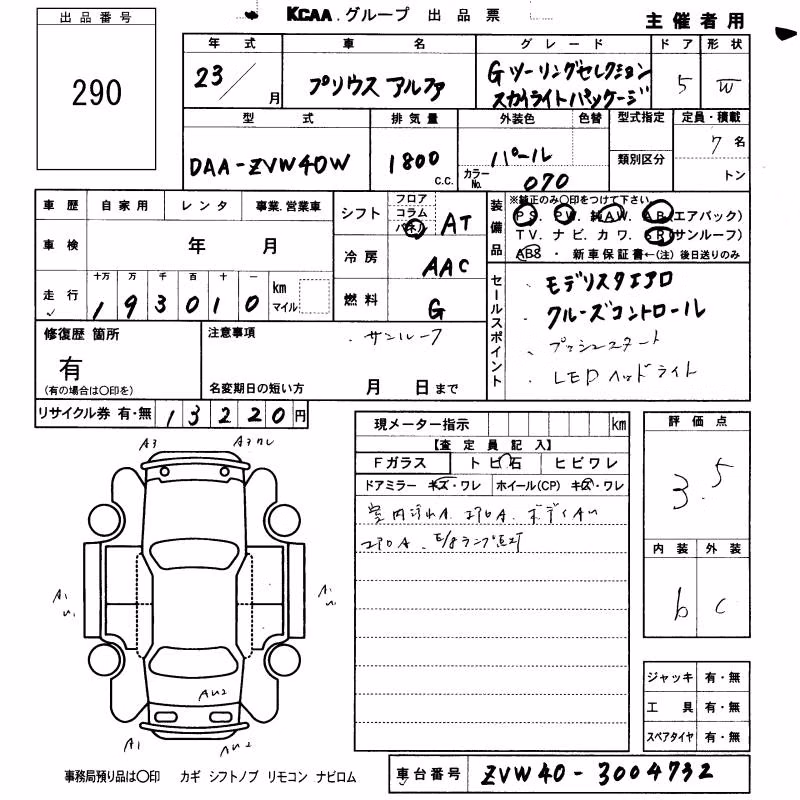 KCAA.グループ 出品票
主催者用
出品番号
290
年式 車名 グレード ドア 形状
23/月 プリウス アルファ Gツーリングセレクション スカイライトパッケージ 5 W
型式 排気量 外装色 色替 型式指定 定員・積載
DAA-ZVW40W 1800 c.c. パール 類別区分 7名
カラーNo. 070 トン
車歴 自家用 レンタ 事業.営業車
車検 年 月
走行 十万 万 千 百 十 一 km マイル
193010
シフト フロア コラム パネル AT
冷房 AAC
燃料 G
装備品
※純正のみ〇印をつけて下さい
PS. PW. 純AW. AB(エアバック)
TV. ナビ. カワ. SR(サンルーフ)
ABS ・ 新車保証書←(注) 後日送りのみ
セールスポイント
・モデリスタエアロ
・クルーズコントロール
・プッシュスタート
・LEDヘッドライト
修復歴 箇所
有
(有の場合は〇印を)
注意事項
・サンルーフ
名変期日の短い方 月 日まで
リサイクル券 有・無 13220円
現メーター指示 km
【査定員記入】
Fガラス トビ石 ヒビワレ
ドアミラー キズ・ワレ ホイール(CP) キズ・ワレ
エアロA.
評価点
3.5
内装 外装
b c
A3
A1
A1
A1
AU2
AU2
ジャッキ 有・無
工具 有・無
スペアタイヤ 有・無
事務局預り品は〇印 カギ シフトノブ リモコン ナビロム
車台番号 ZVW40-3004732